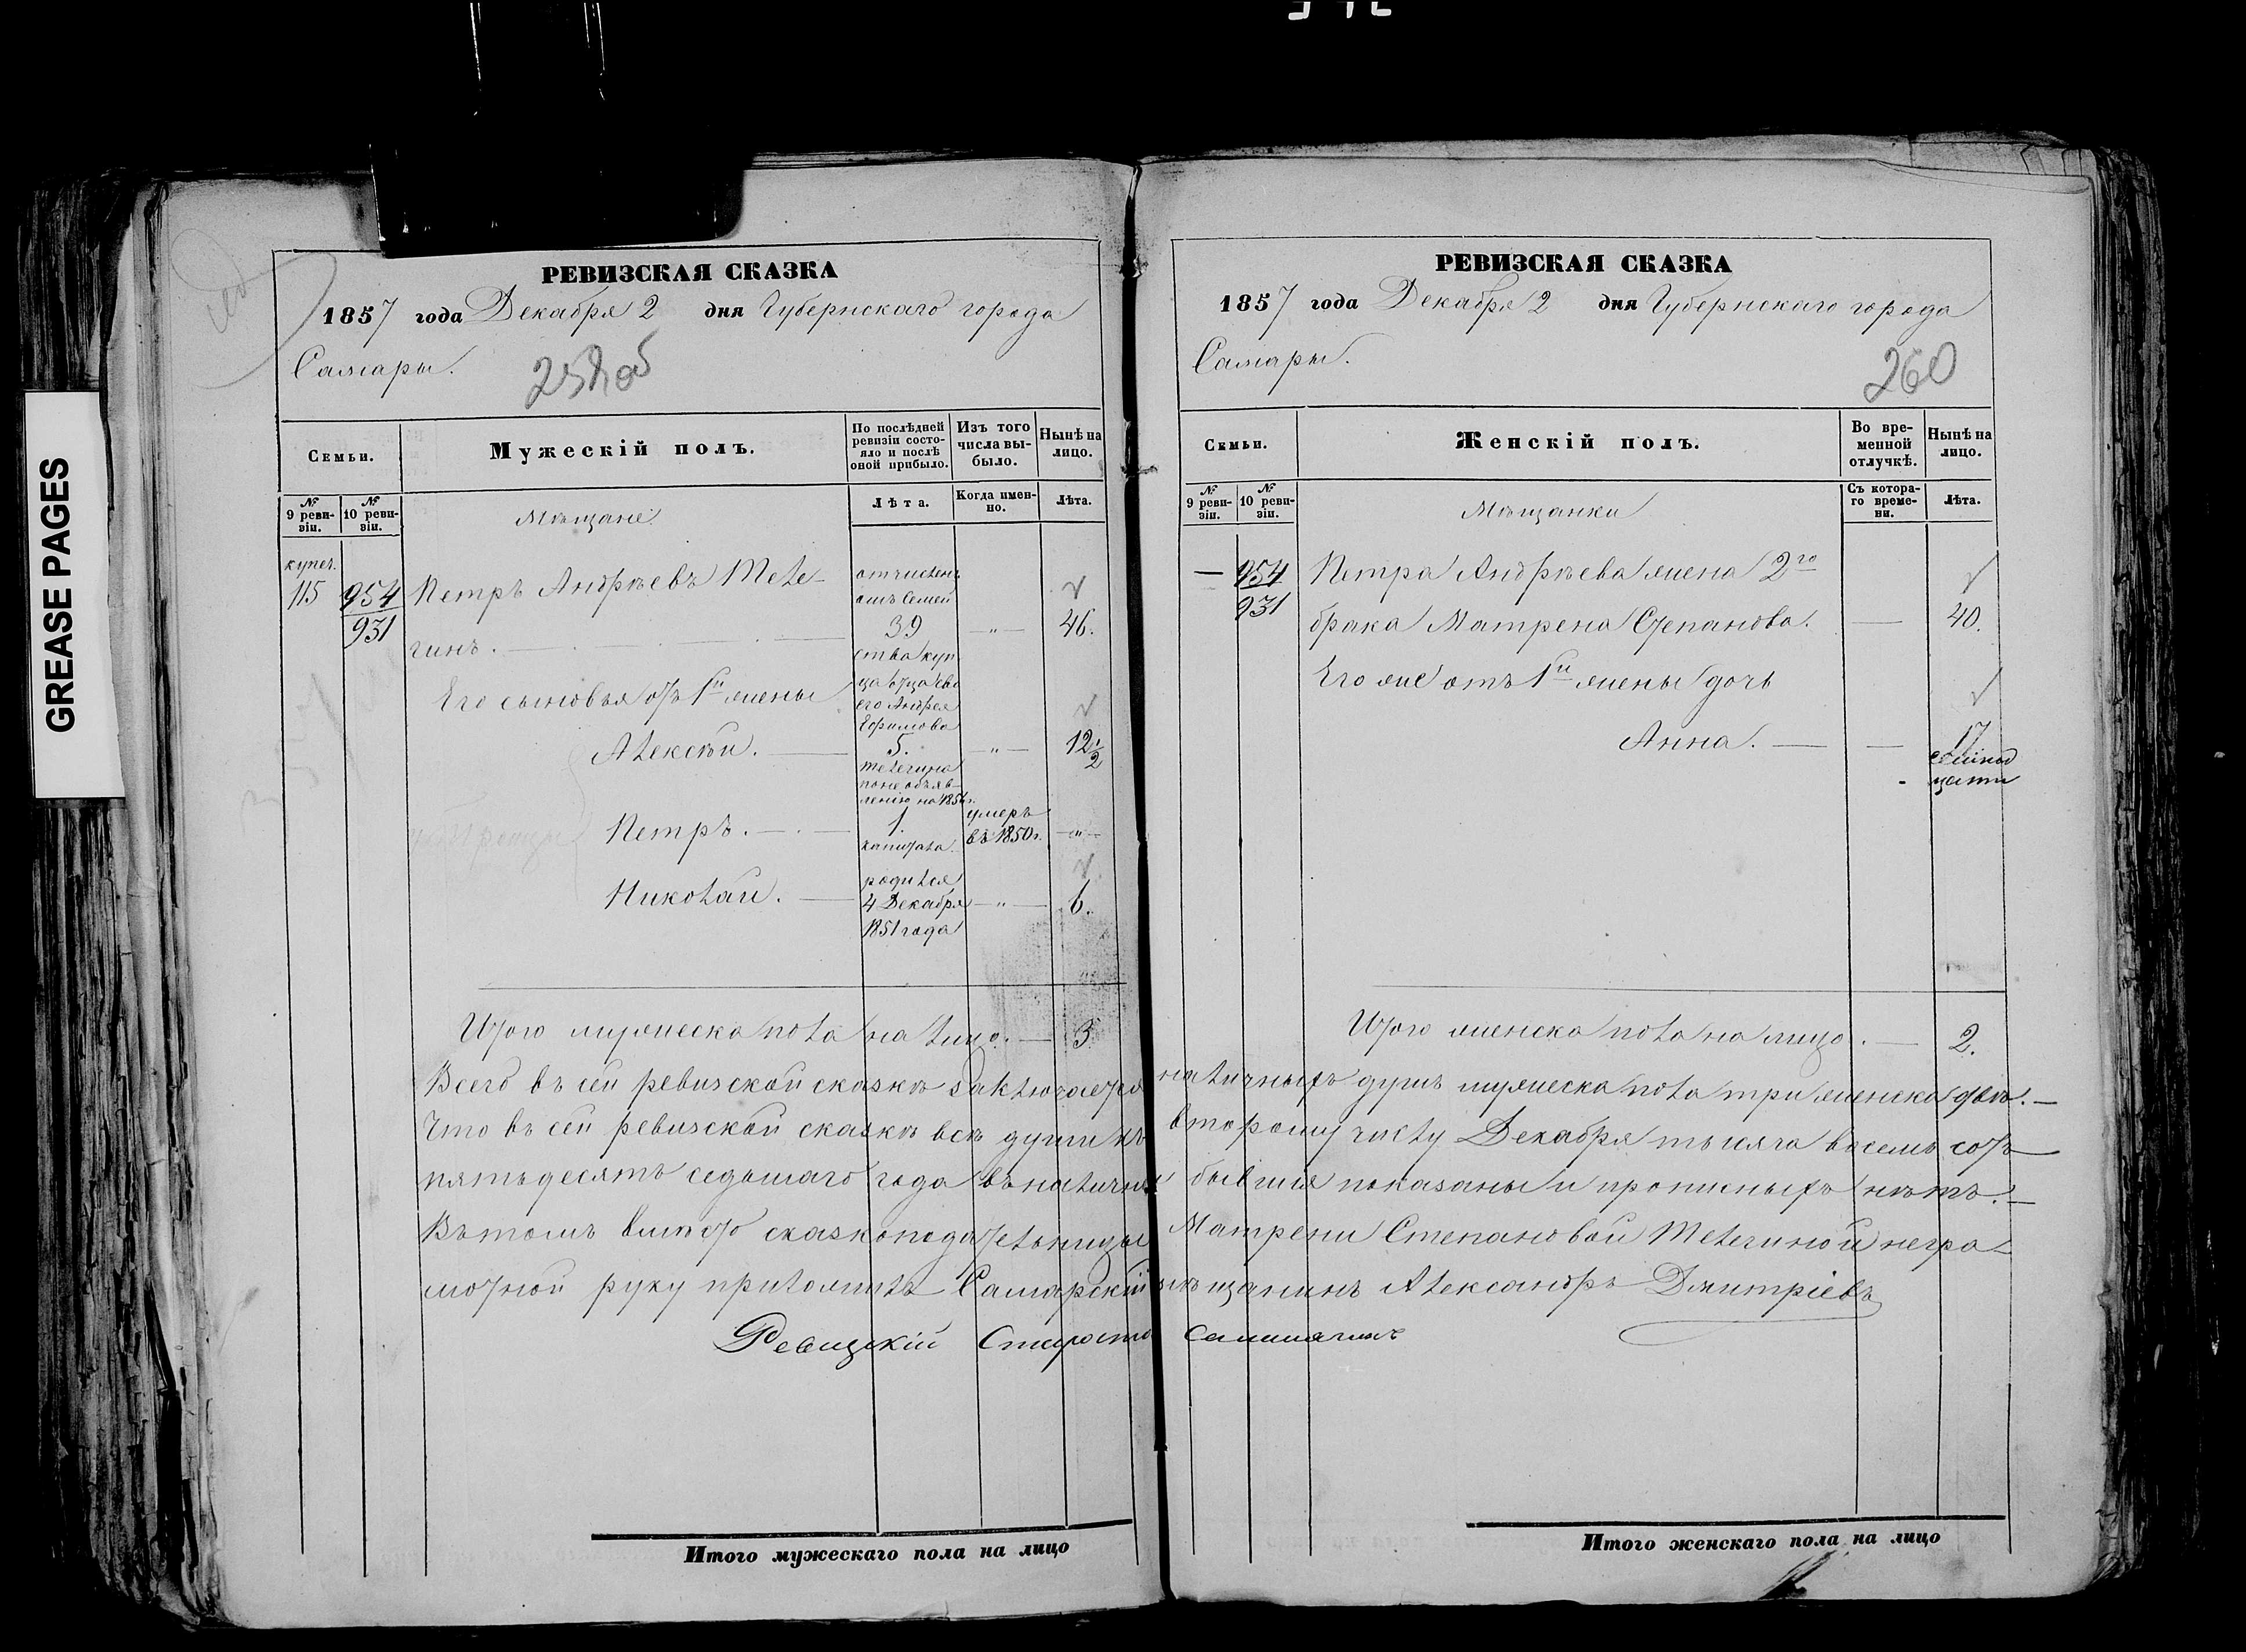 GREASE PAGES
РЕВИЗСКАЯ СКАЗКА
1857 года Декабря 2 дня Губернскаго города
Самары.
Семьи.
Мужескій полъ.
По послѣдней ревизіи состо-
яло и послѣ
оной прибыло.
Изъ того
числа вы-
было.
Нынѣ на
лицо.
№
9 реви-
зіи.
№
10 реви-
зіи.
Мѣщане
Лѣта.
Когда имен-
но.
Лѣта.
купеч.
115
954
931
Петръ Андрѣевъ Теле-
гинъ.
отчисленъ
отъ Семей
39
ства куп
ца отца сво
его Андрея
Ефимова
Телегина
по не объяв-
ленію на 1854 г.
капитала.
— " —
46.
Его сыновья отъ 1й жены
Алексѣй. — 5. — " — 12 1/2
Петръ. — 1. умеръ
въ 1850 г. — " —
Николай. — родился
4 Декабря — " — 6.
1851 года
Итого мужеска пола на лицо. — 3
РЕВИЗСКАЯ СКАЗКА
1857 года Декабря 2 дня Губернскаго города
Самары.
260
Семьи.
Женскій полъ.
Во вре-
менной
отлучкѣ.
Нынѣ на
лицо.
№
9 реви-
зіи.
№
10 реви-
зіи.
Мѣщанки
Съ котора-
го време-
ни.
Лѣта.
— 954
931
Петра Андрѣева жена 2го
брака Матрена Степанова. — 40.
Его же отъ 1й жены дочь
Анна. — — 17
семнад
цати
Итого женска пола на лицо. — 2.
Всего въ сей ревизской сказкѣ заключается наличныхъ душъ мужеска пола три женска двѣ. —
Что въ сей ревизской сказкѣ всѣ души къ второму числу Декабря тысяча восемь сотъ
пятьдесятъ седьмаго года въ наличныя бывшія показаны и прописныхъ нѣтъ. —
Въ томъ вмѣсто сказкоподательницы Матрены Степановой Телегиной негра-
мотной руку приложилъ Самарскій мѣщанинъ Александръ Дмитріевъ
Ревизскій Староста
Итого мужескаго пола на лицо
Итого женскаго пола на лицо